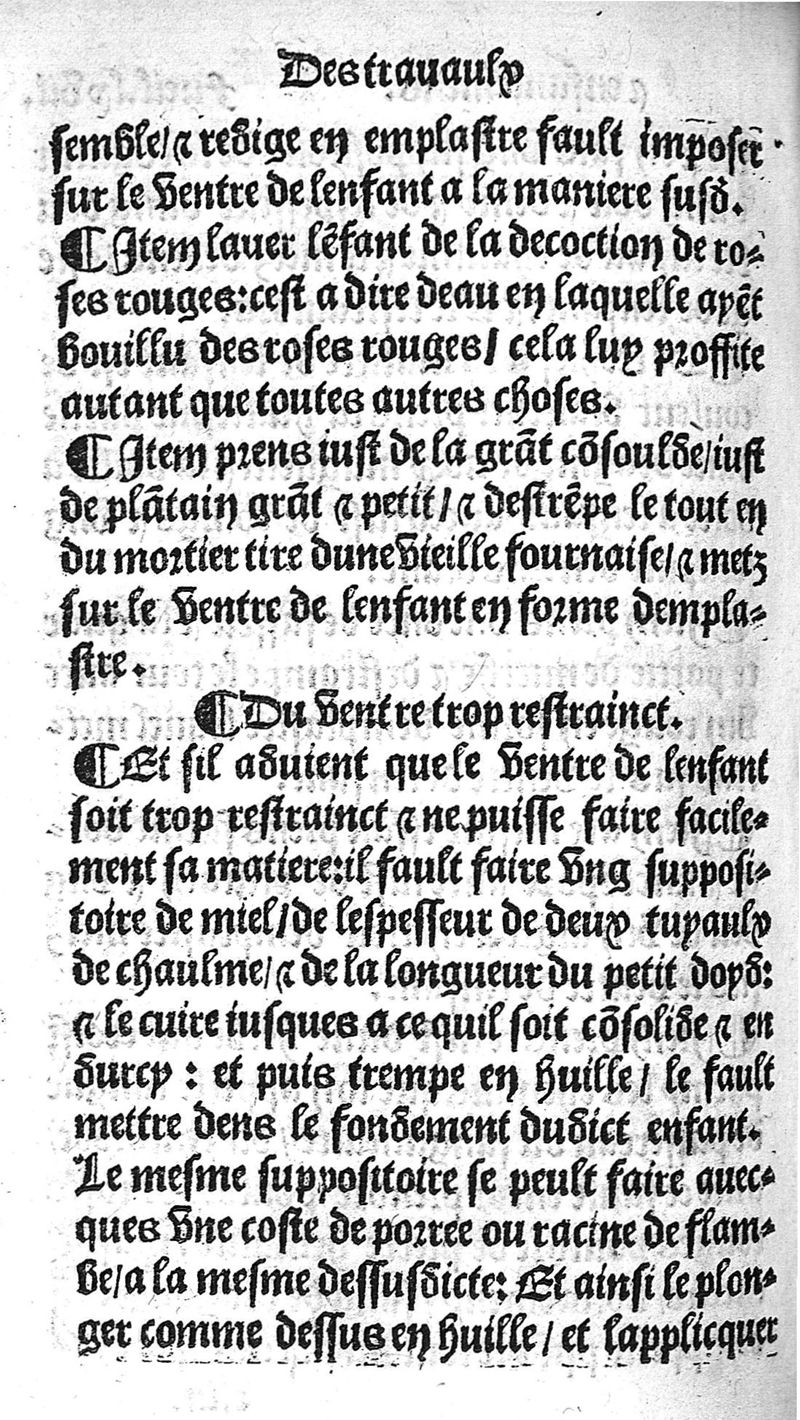 Des trauaulx
semble/ ⁊ redige en emplastre fault impoſer̃
sur le ventre de lenfant a la maniere suſd.
¶ Item lauer lẽfant de la decoction de ro⸗
ſes rouges: ceſt a dire deau en laquelle ayẽt
bouillu des roſes rouges/ cela luy proffite
autant que toutes autres choſes.
¶ Item prens iuſt de la grãt cõſoulde/ iuſt
de plãtain grãt ⁊ petit/ ⁊ deſtrẽpe le tout en
du mortier tire dune vieille fournaiſe/ ⁊ metz
ſur le ventre de lenfant en forme dempla⸗
ſtre.
¶ Du ventre trop reſtrainct.
¶ Et ſil aduient que le ventre de lenfant
ſoit trop reſtrainct ⁊ ne puiſſe faire facile⸗
ment ſa matiere: il fault faire vng ſuppoſi⸗
toire de miel/ de leſpeſſeur de deux tuyaulx
de chaulme/ ⁊ de la longueur du petit doyd:
⁊ le cuire iuſques a ce quil ſoit cõſolide ⁊ en
durcy : et puis trempe en huille/ le fault
mettre dens le fondement dudict enfant.
Le meſme ſuppoſitoire ſe peult faire auec⸗
ques vne coſte de porree ou racine de flam⸗
be/ a la meſme deſſuſdicte: Et ainſi le plon⸗
ger comme deſſus en huille/ et lapplicquer